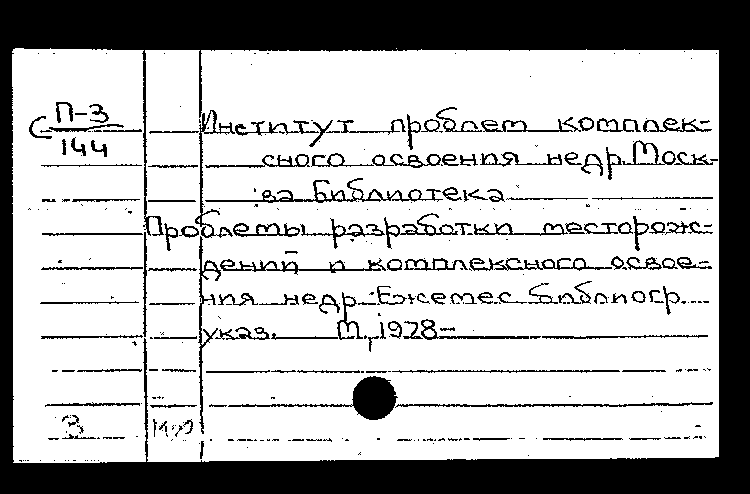 П-3
144
Институт проблем комплек-
сного освоения недр. Моск-
ва Библиотека
Проблемы разработки месторож-
дений и комплексного освое-
ния недр: Ежемес. библиогр.
указ. М, 1978-
3